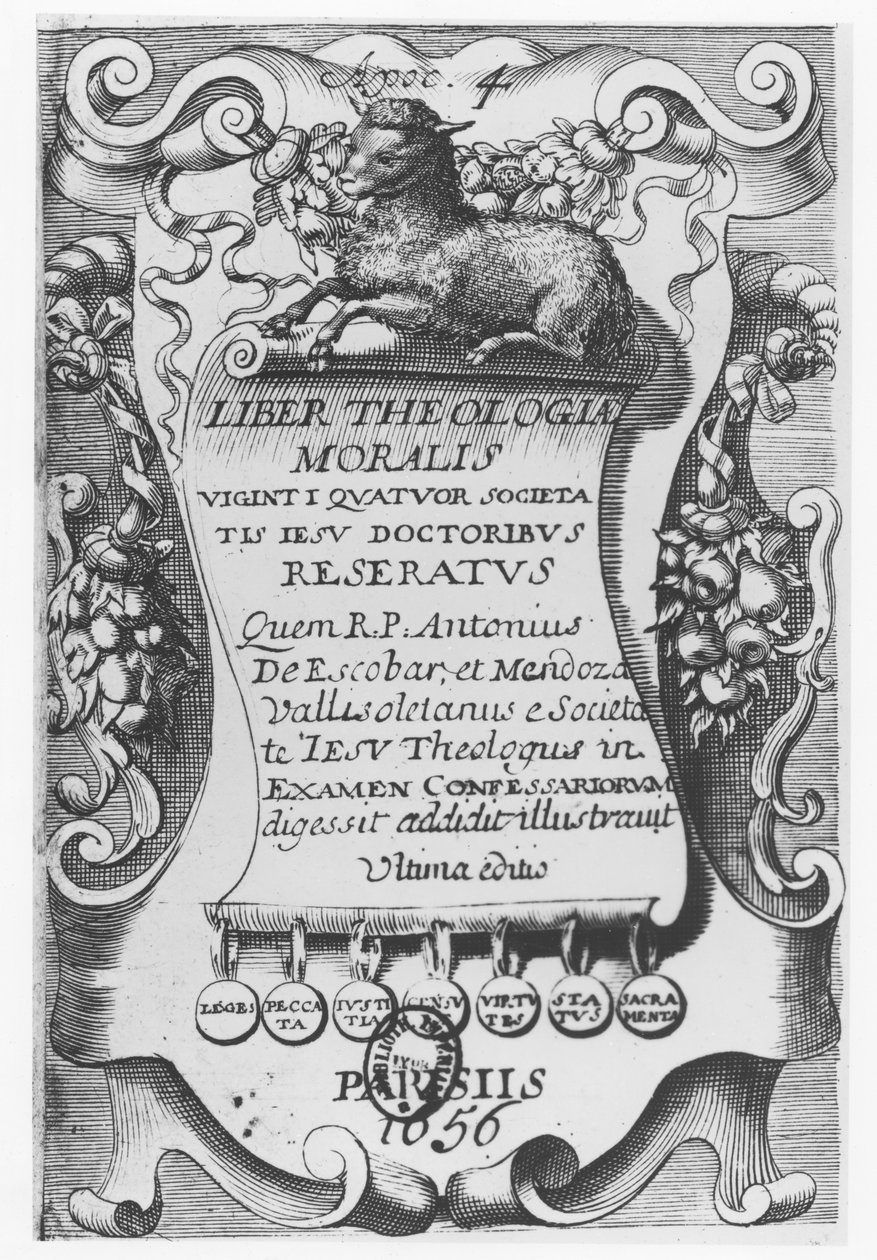 Apoc. 4
LIBER THEOLOGIÆ
MORALIS
VIGINTI QVATVOR SOCIETA
TIS IESV DOCTORIBVS
RESERATVS
Quem R.P. Antonius
De Escobar, et Mendoza
Vallisoletanus e Societa
te IESV Theologus in
EXAMEN CONFESSARIORVM
digessit addidit illustrauit
Ultima editio
LEGES
PECCA
TA
IVSTI
TIA
CENSV
VIRTV
TES
STA
TVS
SACRA
MENTA
BIBLIOTH.
LYON
PARISIIS
1656